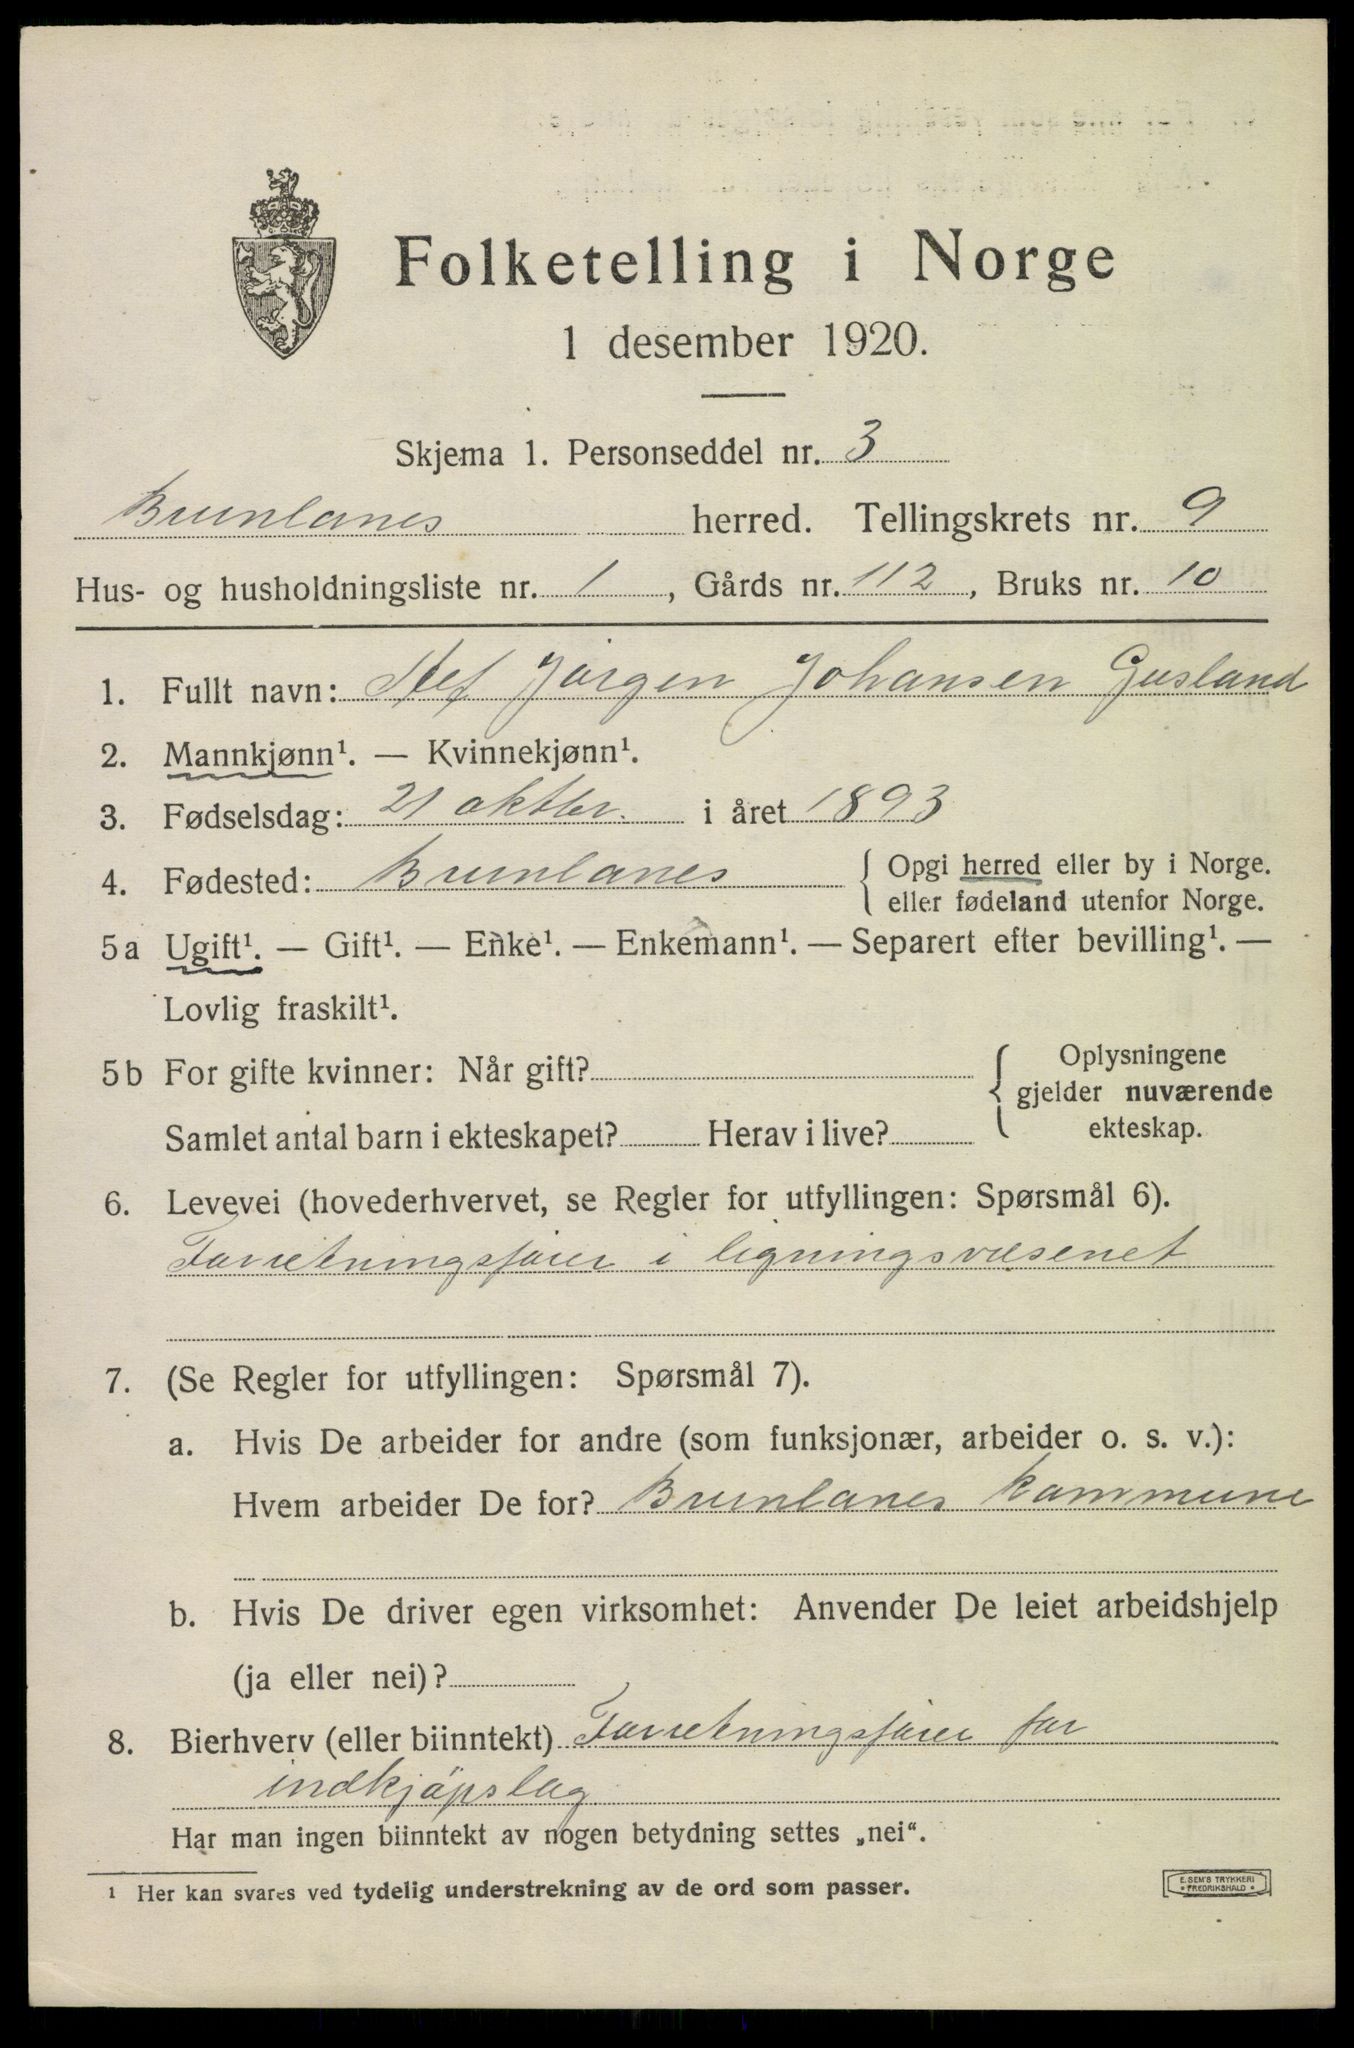 Folketelling i Norge
1 desember 1920.
Skjema 1. Personseddel nr. 3
Brunlanes herred. Tellingskrets nr. 9
Hus- og husholdningsliste nr. 1, Gårds nr. 112, Bruks nr. 10
1. Fullt navn: Jørgen Johansen Gusland
2. Mannkjønn¹. — Kvinnekjønn¹.
3. Fødselsdag: 21 oktbr. i året 1893
4. Fødested: Brunlanes { Opgi herred eller by i Norge.
eller fødeland utenfor Norge.
5 a Ugift¹. — Gift¹. — Enke¹. — Enkemann¹. — Separert efter bevilling¹. —
Lovlig fraskilt¹.
5 b For gifte kvinner: Når gift? { Oplysningene
gjelder nuværende
ekteskap.
Samlet antal barn i ekteskapet? Herav i live?
6. Levevei (hovederhvervet, se Regler for utfyllingen: Spørsmål 6).
Forretningsfører i ligningsvæsenet
7. (Se Regler for utfyllingen: Spørsmål 7).
a. Hvis De arbeider for andre (som funksjonær, arbeider o. s. v.):
Hvem arbeider De for? Brunlanes kommune
b. Hvis De driver egen virksomhet: Anvender De leiet arbeidshjelp
(ja eller nei)?
8. Bierhverv (eller biinntekt) Forretningsfører for
indkjøpslag
Har man ingen biinntekt av nogen betydning settes „nei“.
¹ Her kan svares ved tydelig understrekning av de ord som passer.
E. SEM'S TRYKKERI
FREDRIKSHALD